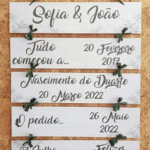 Sofia & João
Tudo 20 Fevereiro
começou a... 2017
Nascimento do Duarte
20 Março 2022
O pedido... 26 Maio
2022
Felizes